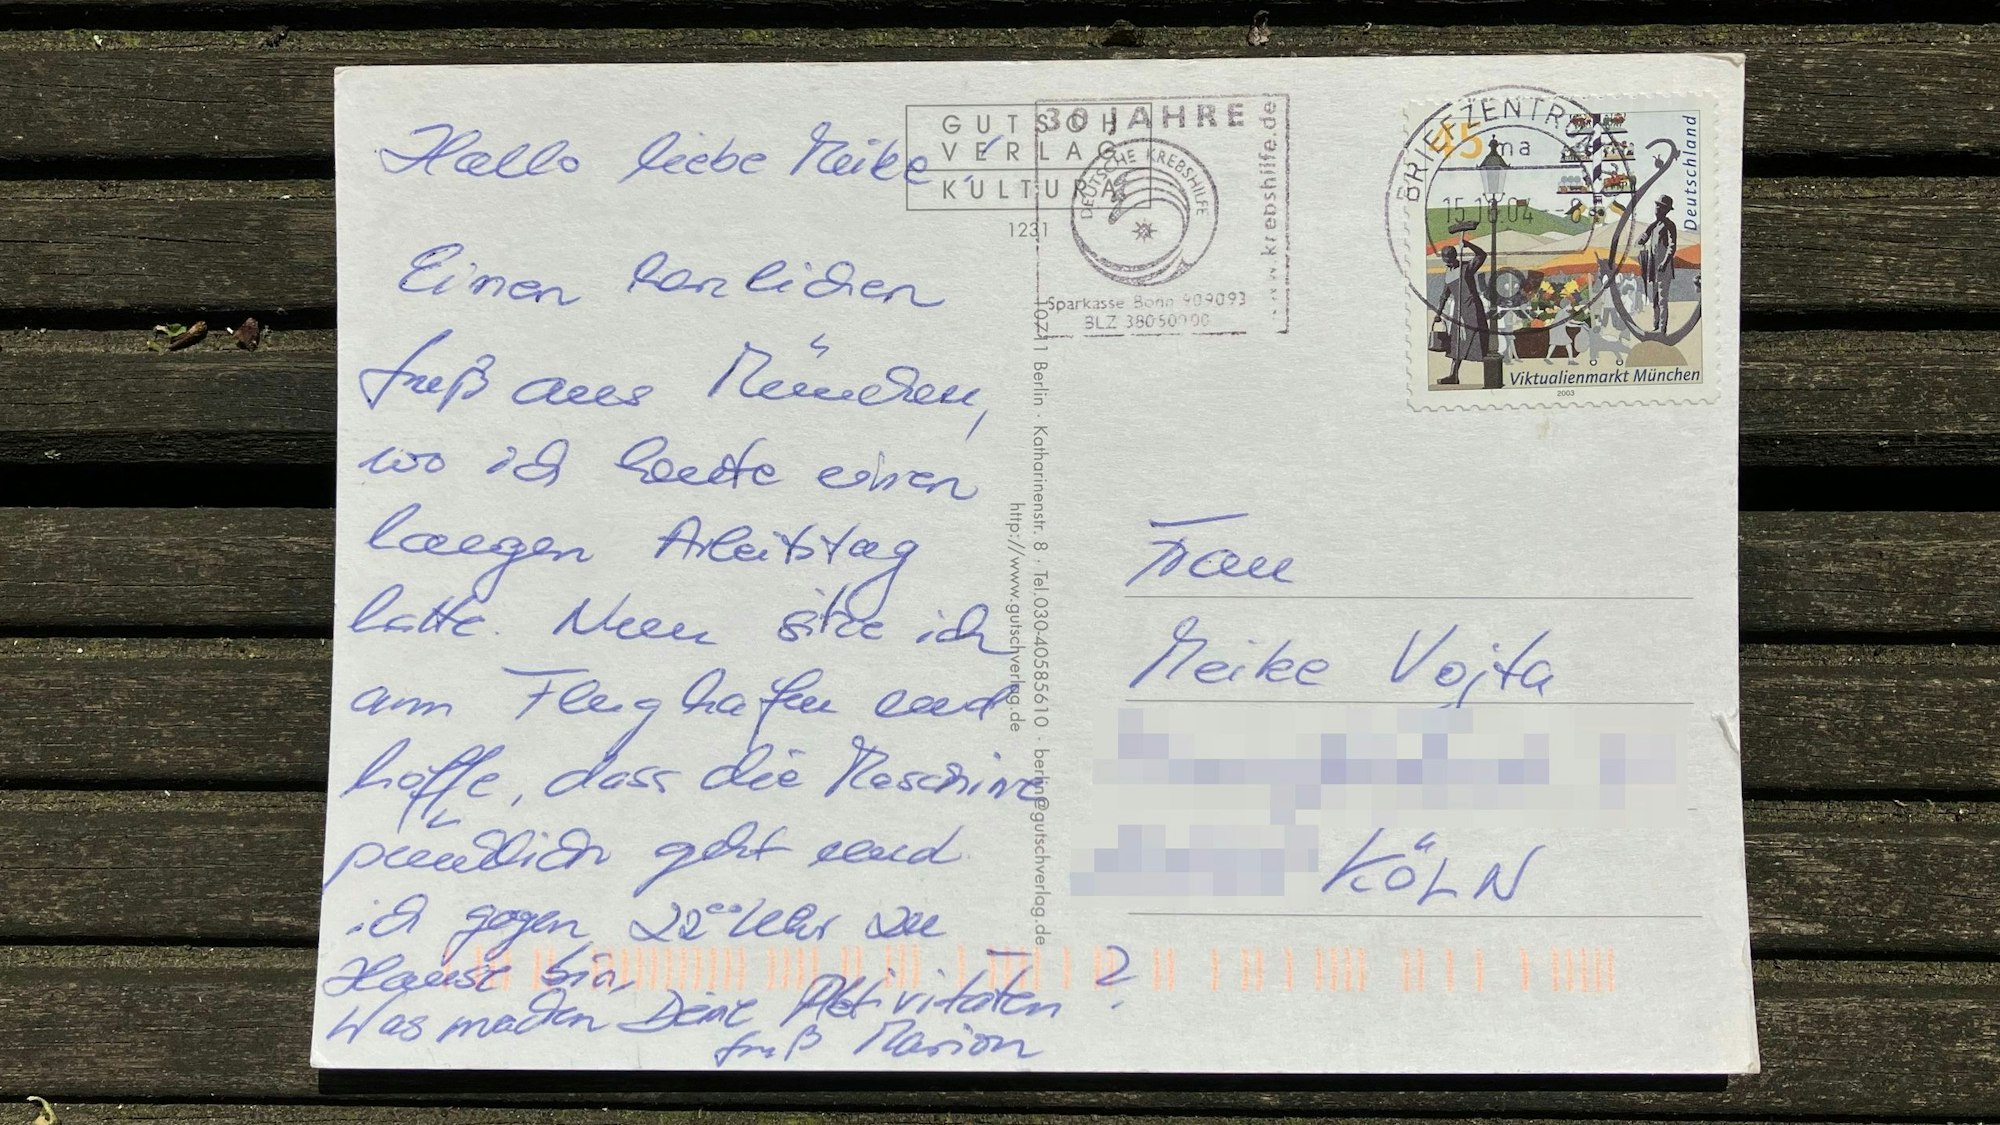 Hallo liebe Meike,
Einen herzlichen
Gruß aus München,
wo ich heute einen
langen Arbeitstag
hatte. Nun sitze ich
am Flughafen und
hoffe, dass die Maschine
pünktlich geht und
ich gegen 22⁰⁰ Uhr zu
Hause bin,
Was machen Deine Aktivitäten?
Gruß Marion
GUTSCH
VERLAG
KULTURA
1231
10711 Berlin · Katharinenstr. 8 · Tel.030-40585610 · berlin@gutschverlag.de
http://www.gutschverlag.de
30 JAHRE
DEUTSCHE KREBSHILFE
www.krebshilfe.de
Sparkasse Bonn 909093
BLZ 38050000
BRIEFZENTRUM
ma
04
45
Deutschland
Viktualienmarkt München
2003
Frau
Meike Vojta
KÖLN